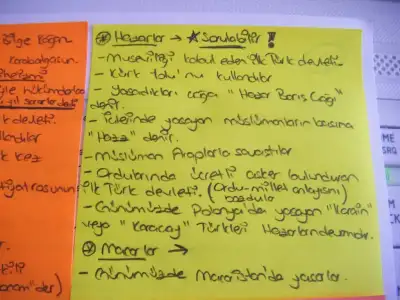 Bilge Kağan
Hazarlar → ★ Sorulabilir !
- Museviliği kabul eden ilk Türk devleti.
- Kürk Yolu'nu kullandılar
- Yaşadıkları çağa "Hazar Barış Çağı"
denir.
- İçlerinde yaşayan müslümanların başına
"Hazz" denir.
- Müslüman Araplarla savaştılar
- Ordularında ücretli asker bulunduran
ilk Türk devleti. (Ordu-millet anlayışı)
bozdular
- Günümüzde Polonya'da yaşayan "Karaim"
veya "Karaçay" Türkleri Hazarların devamıdır.
Macarlar →
- Günümüzde Macaristan'da yaşarlar.
k devleti.
llandılar
k kez